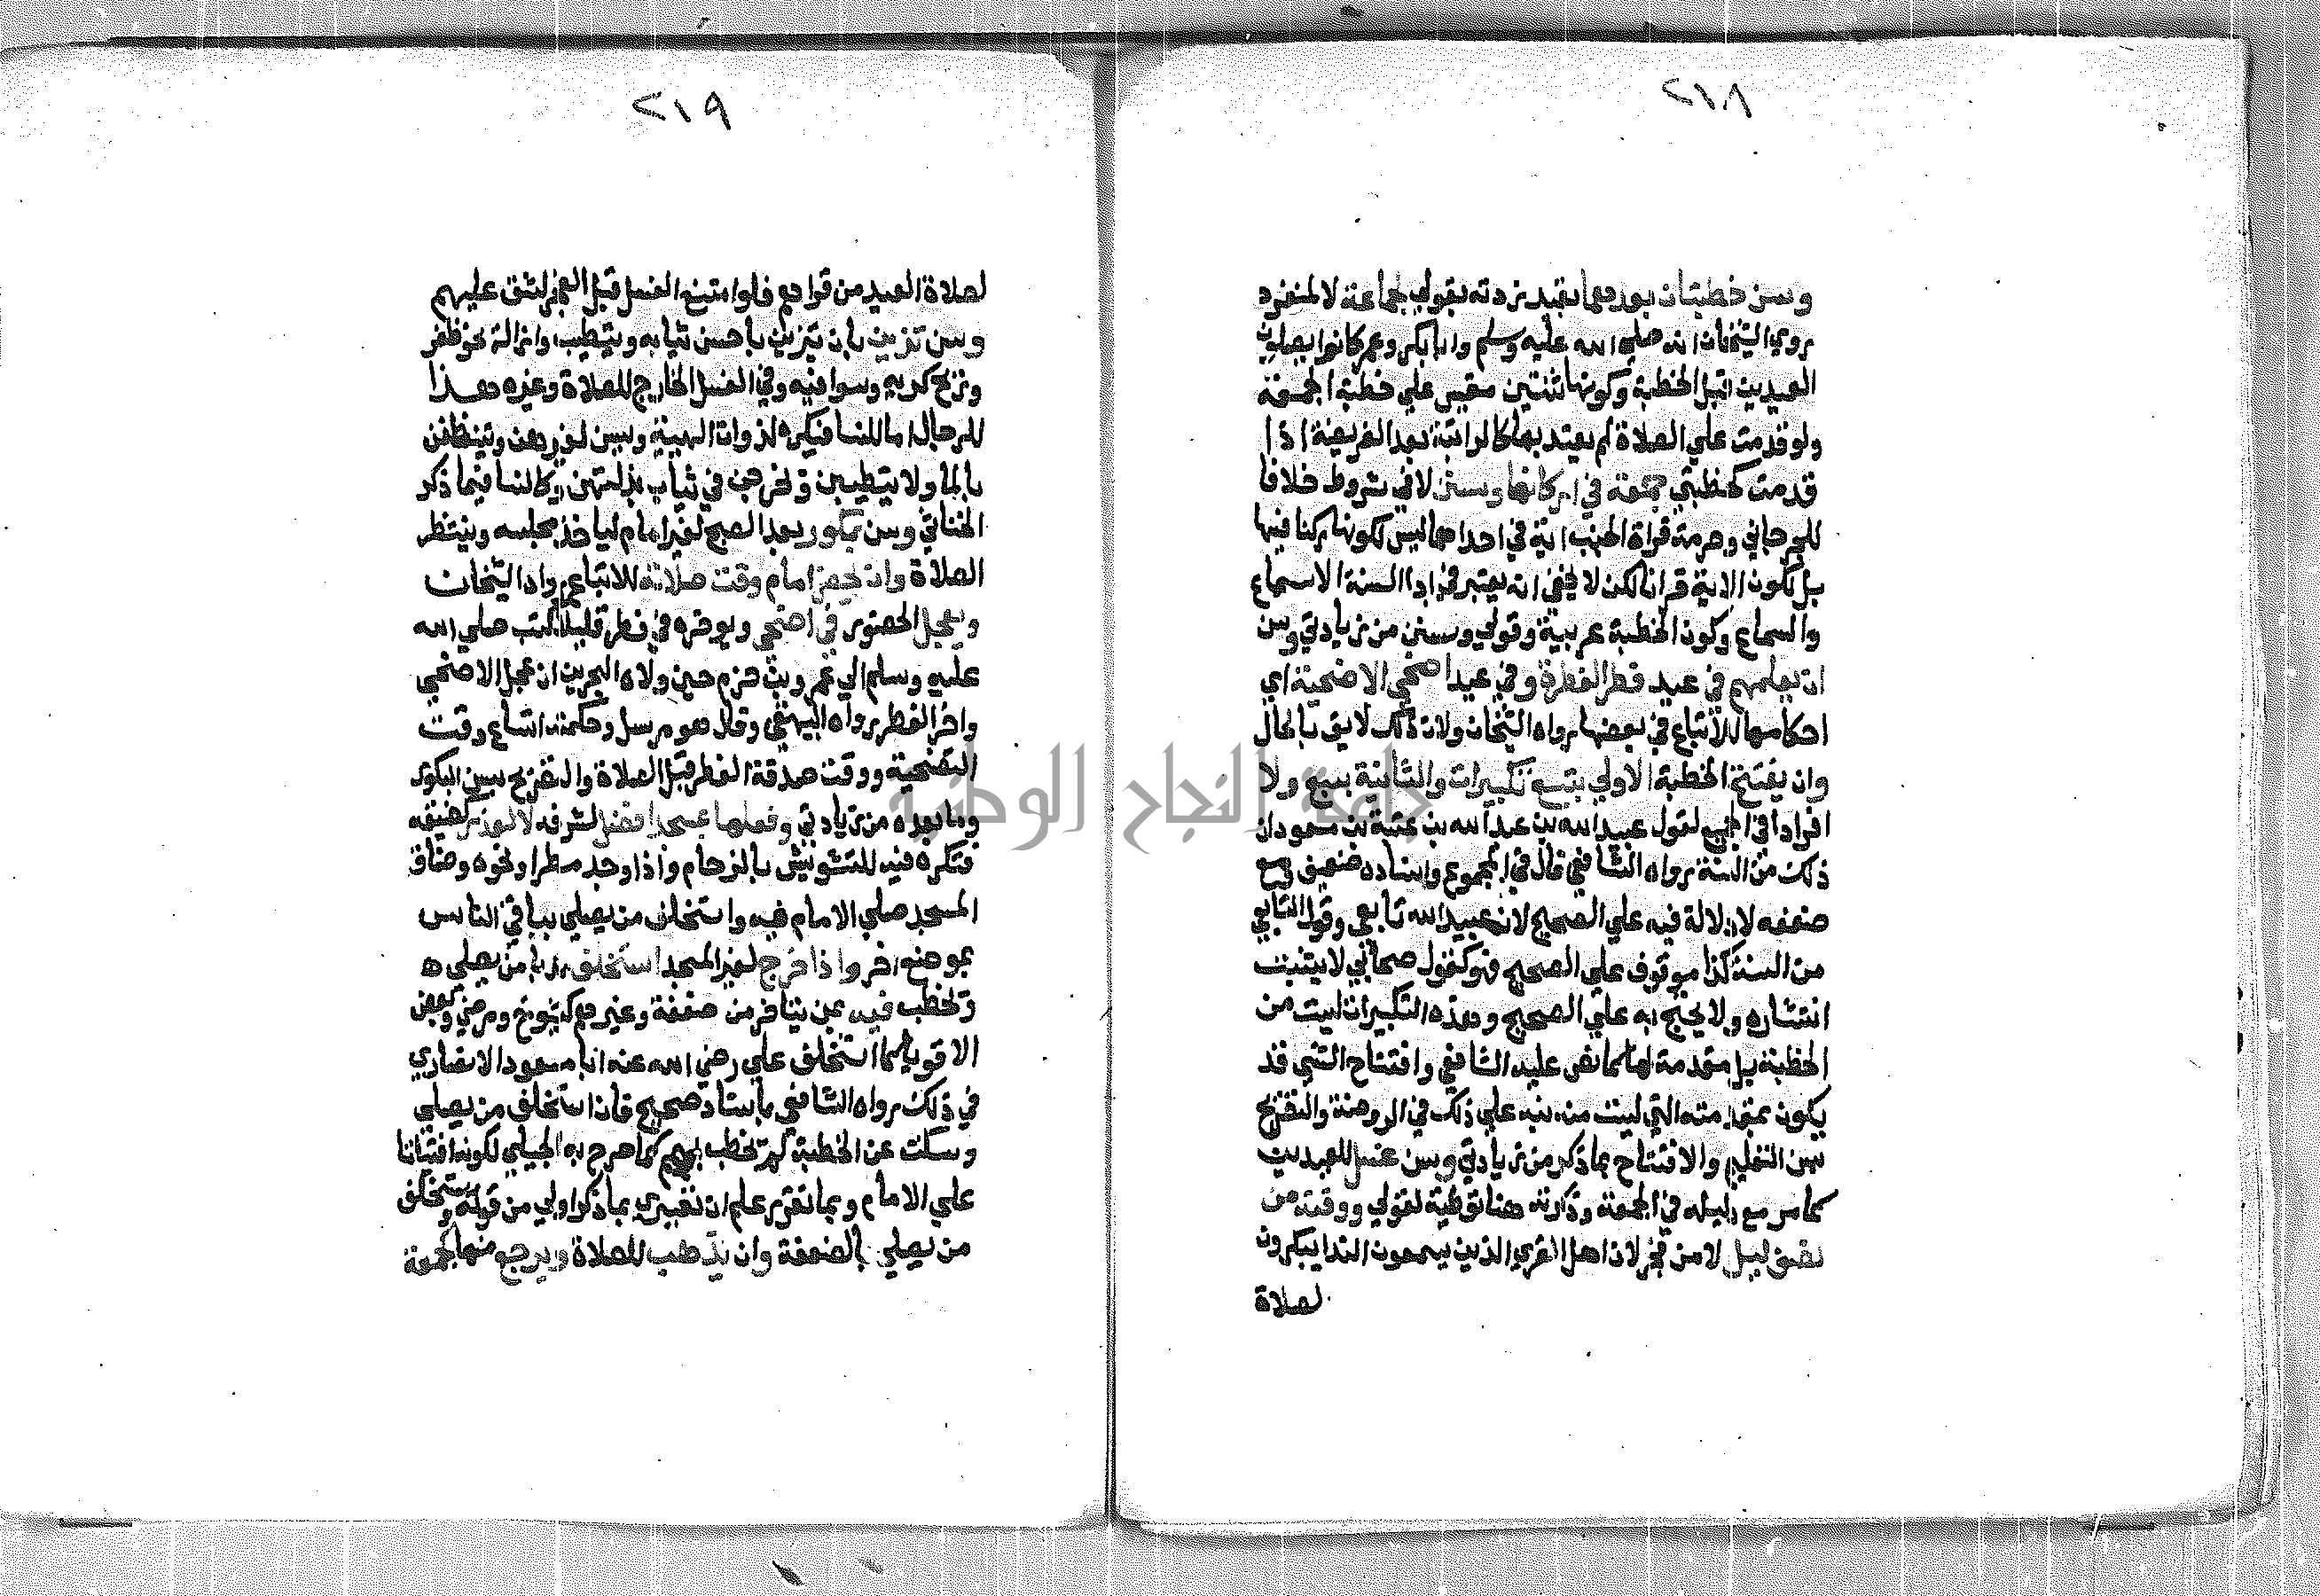 ٢١٨
وسن خطبتان بعدهما بقيد زدته بقولي لجماعة لا لمنفرد
روي الشيخان انه صلي الله عليه وسلم وابا بكر وعمر كانوا يصلون
العيدين قبل الخطبة وكونها ثنتين مقيس علي خطبة الجمعة
ولو قدمت علي الصلاة لم يعتد بها كالراتبة بعد الفريضة اذا
قدمت كخطبتي جمعة في اركانها وسنن لا في شروط خلافا
للجرجاني وحرمة قراة الجنب اية في احداهما ليس لكونها ركنا فيها
بل لكون الاية قرانا لكن لا يخفي انه يعتبر في ادا السنة الاسماع
والسماع وكون الخطبة عربية وقولي وسنن من زيادتي وسن
ان يعلمهم في عيد فطر الفطرة وفي عيد اضحي الاضحية اي
احكامها للاتباع في بعضها رواه الشيخان ولان ذلك لايق بالحال
وان يفتتح الخطبة الاولي بتسع تكبيرات والثانية بسبع ولا
افرادا في الجميع لقول عبيد الله بن عبد الله بن عتبة بن مسعود ان
ذلك من السنة رواه الشافعي قال في المجموع واسناده ضعيف ومع
ضعفه لا دلالة فيه علي الصحيح لان عبيد الله تابعي وقول التابعي
من السنة كذا موقوف علي الصحيح فهو كقول صحابي لا يتثبت
انتشاره ولا يحتج به علي الصحيح وهذه التكبيرات ليست من
الخطبة بل مقدمة لها كما نص عليه الشافعي وافتتاح الشي قد
يكون بمقدمته التي ليست منه نبه علي ذلك في الروضة والتصريح
بسن التعليم والافتتاح بما ذكر من زيادتي وسن غسل للعيدين
كما مر مع دليله في الجمعة وذكرته هنا توطية لقولي ووقته من
نصف ليل لا من فجر لان اهل القري الذين يسمعون الندا يبكرون
لصلاة
٢١٩
لصلاة العيد من قراهم فلو امتنع الغسل قبل الفجر لشق عليهم
وسن تزين بان يتزين باحسن ثيابه ويتطيب وازالة نحو ظفر
وريح كريه وسوا فيه وفي الغسل الخارج للصلاة وغيره هذا
للرجال اما للنسا فيكره لذوات الهيئة ويسن لغيرهن ويتنظفن
بالما ولا يتطيبن وتخرجن في ثياب بذلتهن وكالنسا فيما ذكر
الخناثي وسن بكور بعد الصبح لغير امام لياخذ مجلسه وينتظر
الصلاة وان يحضر امام وقت صلاته للاتباع رواه الشيخان
ويعجل الحضور في اضحي ويوخره في فطر قليلا كتب صلي الله
عليه وسلم الي عمرو بن حزم حين ولاه البحرين ان عجل الاضحي
واخر الفطر رواه البيهقي وقال هو مرسل وحكمته اتساع وقت
التضحية ووقت صدقة الفطر قبل الصلاة والتصريح بسن البكور
وما بعده من زيادتي وفعلها بمسجد افضل لشرفه لا لعذر كضيقه
فتكره فيه للتشويش بالزحام واذا وجد مطر او نحوه وضاق
المسجد صلي الامام فيه واستخلف من يصلي بباقي الناس
بموضع اخر واذا خرج لغير المسجد استخلف ندبا من يصلي ه
وتخطب فيه بمن يتاخر من ضعفة وغيرهم كشيوخ ومرضي وبعض
الاقويا كما استخلف علي رضي الله عنه ابا مسعود الانصاري
في ذلك رواه الشافعي باسناد صحيح فان استخلف من يصلي
وسكت عن الخطبة لم تخطب بهم كما صرح به الجيلي لكونه افتياتا
علي الامام وبما تقرر علم ان تعبيري بما ذكر اولي من قوله ويستخلف
من يصلي بالضعفة وان يذهب للصلاة ويرجع منها كجمعة
جامعة النجاح الوطنية